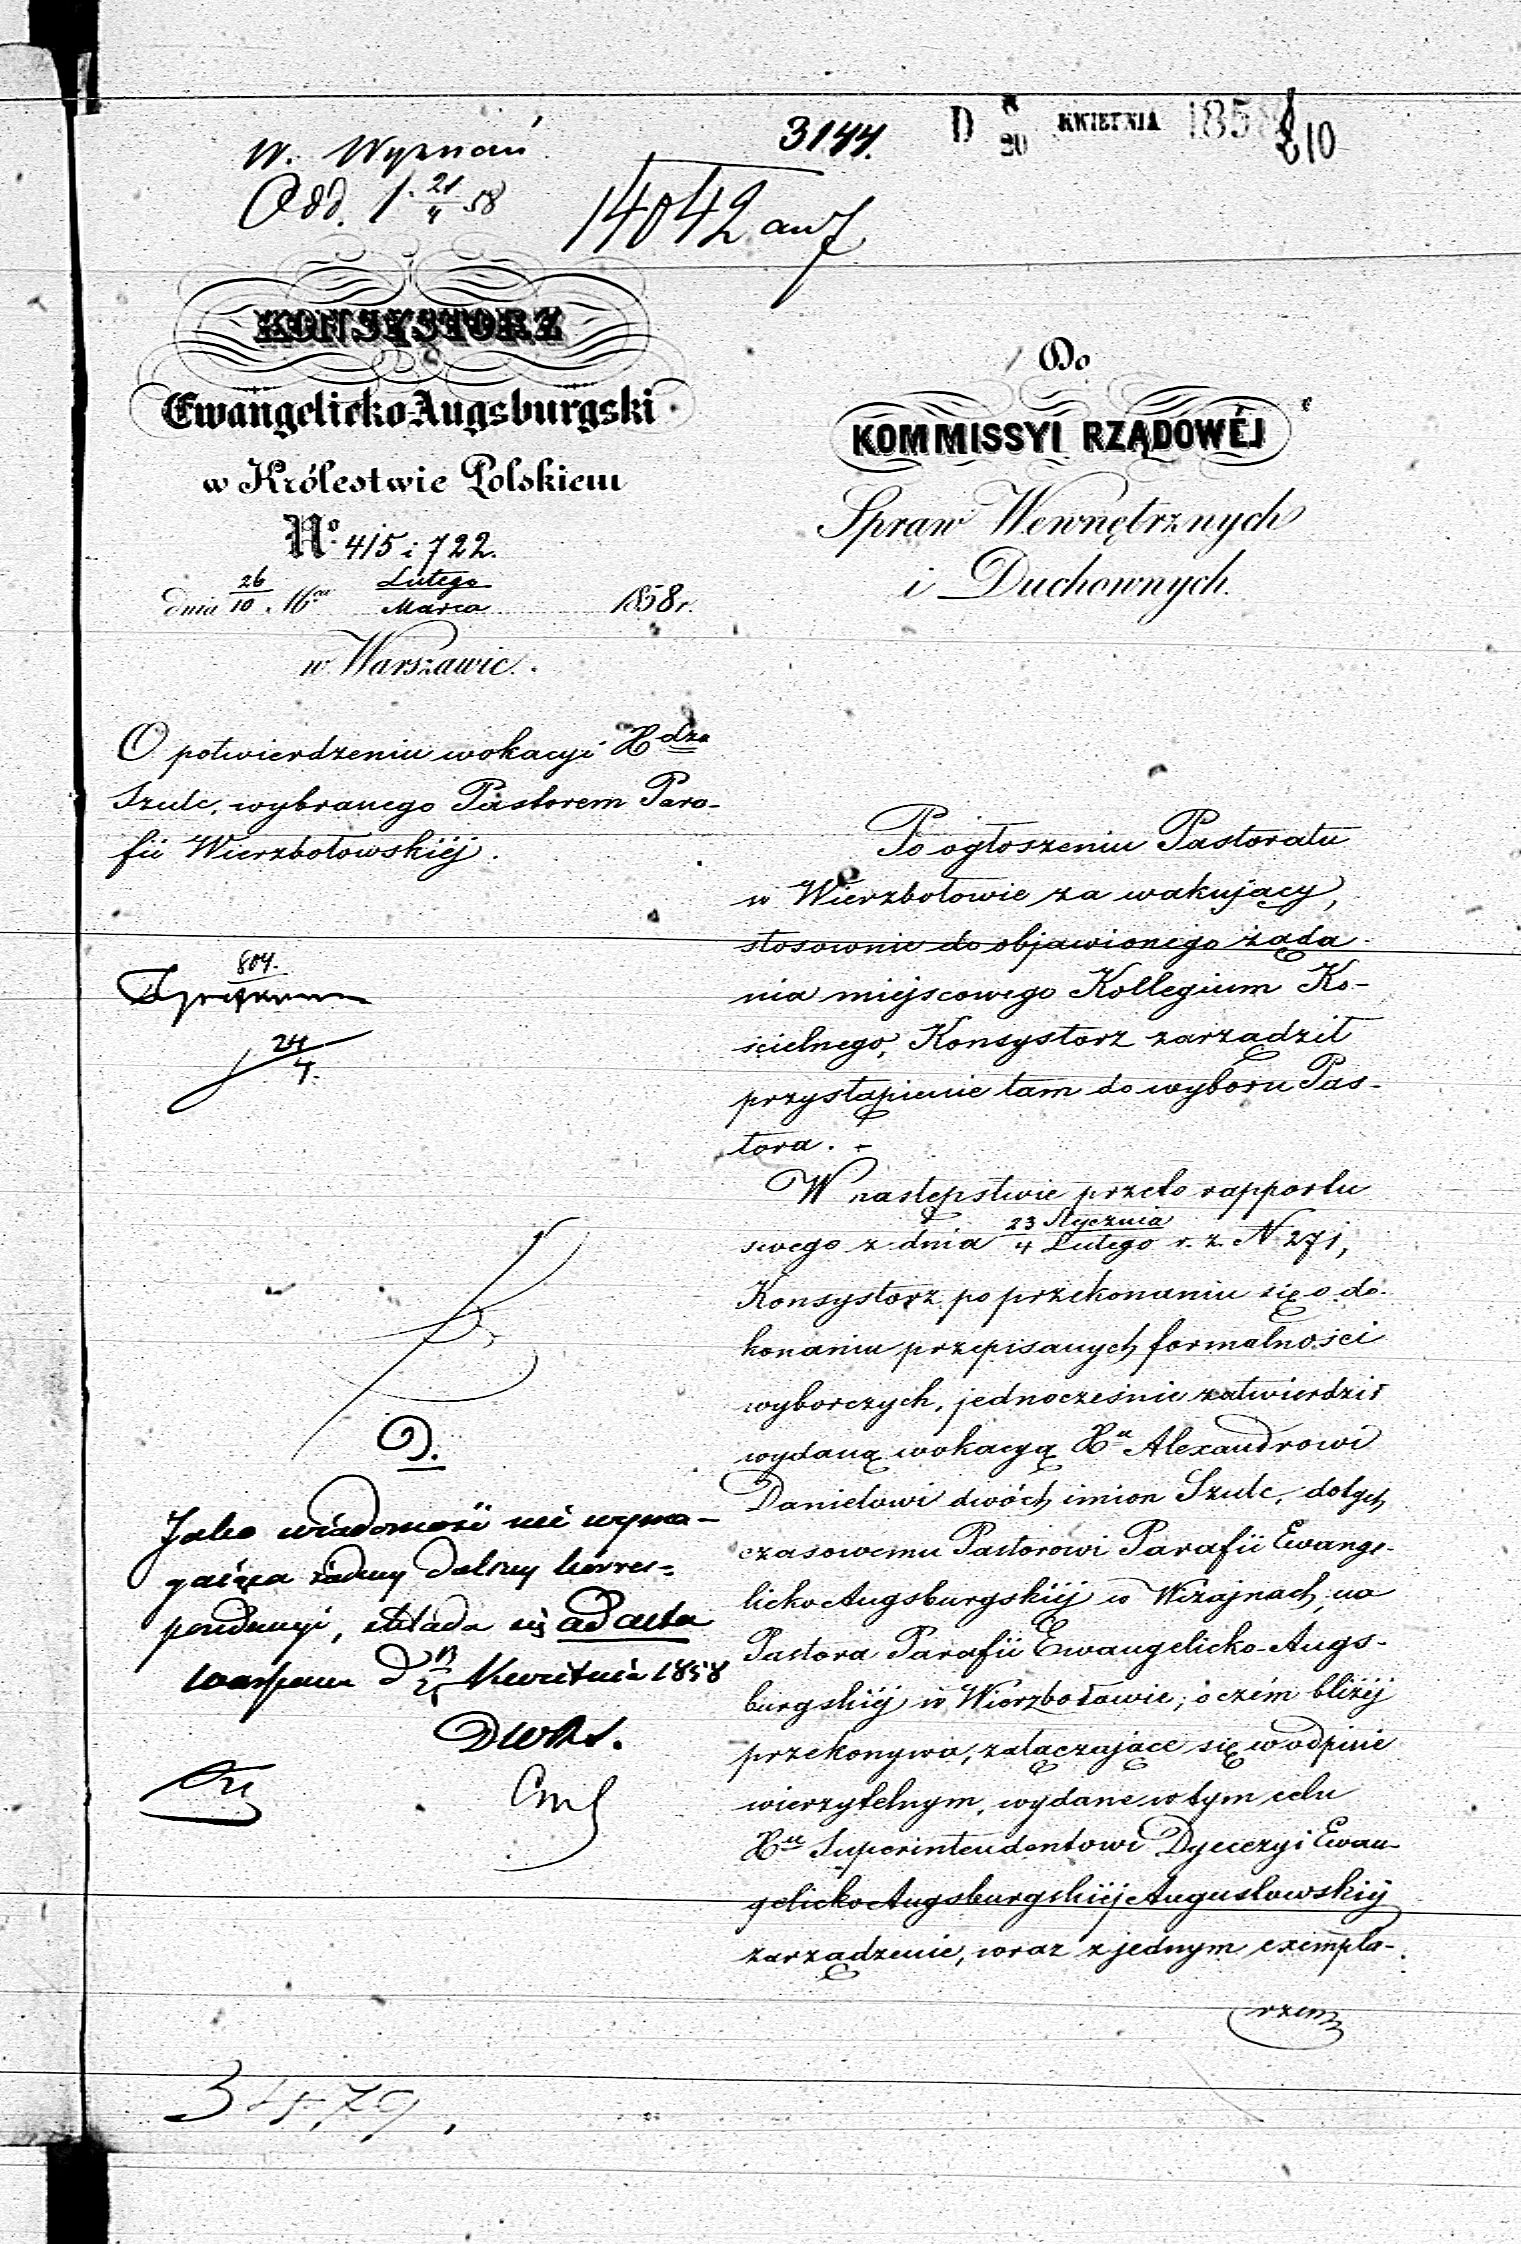 W. Wyznań
Odd. 1. 21/4 58
3144.
14042
D 8/20 KWIETNIA 1858
210
KONSYSTORZ
Ewangelicko-Augsburgski
w Królestwie Polskiem
No. 415 i 722.
dnia 26/10 Mca Lutego/Marca 1858 r.
w Warszawie.
O potwierdzeniu wokacyi Xdza
Szulc, wybranego Pastorem Para-
fii Wierzbołowskiéj.
804.
24/4.
D.
Jako wiadomość nie wyma-
gająca żadnej dalszej korres-
pondencyi, składa się ad acta
Warszawa d. Kwietnia 1858
3479.
Do
KOMMISSYI RZĄDOWÉJ
Spraw Wewnętrznych
i Duchownych.
Po ogłoszeniu Pastoratu
w Wierzbołowie za wakujący,
stosownie do objawionego żąda-
nia miejscowego Kollegium Ko-
ścielnego, Konsystorz zarządził
przystąpienie tam do wyboru Pas-
tora. -
W następstwie przeto rapportu
swego z dnia 23 Stycznia/4 Lutego r. z. N 271,
Konsystorz po przekonaniu się o do-
konaniu przepisanych formalności
wyborczych, jednocześnie zatwierdził
wydaną wokacyą Xu Alexandrowi
Danielowi dwóch imion Szulc, dotych
czasowemu Pastorowi Parafii Ewange-
licko Augsburgskiéj w Wiżajnach, na
Pastora Parafii Ewangelicko-Augs-
burgskiéj w Wierzbołowie; o czém bliżéj
przekonywa, załączające się w odpisie
wierzytelnym, wydane w tym celu
Xu Superintendentowi Dyecezyi Ewan-
gelicko Augsburgskiéj Augustowskiéj
zarządzenie, wraz z jednym exempla-
rzem